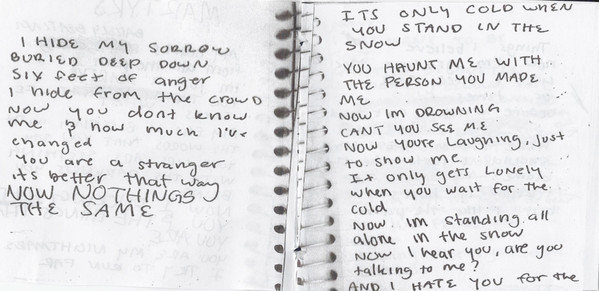 I HIDE MY SORROW
BURIED DEEP DOWN
SIX feet of anger
I hide from the CROWD
NOW you dont know
me & how much I've
changed
you are a stranger
its better that way
NOW NOTHINGS
THE SAME
ITS ONLY COLD WHEN
YOU STAND IN THE
SNOW
YOU HAUNT ME WITH
THE PERSON YOU MADE
ME
NOW IM DROWNING
CANT YOU SEE ME
NOW YOURE LAUGHING, just
to show me
It only gets LONELY
when you wait for the
cold
NOW IM STANDING all
alone in the snow
NOW I hear you, are you
talking to me?
AND I HATE YOU for the